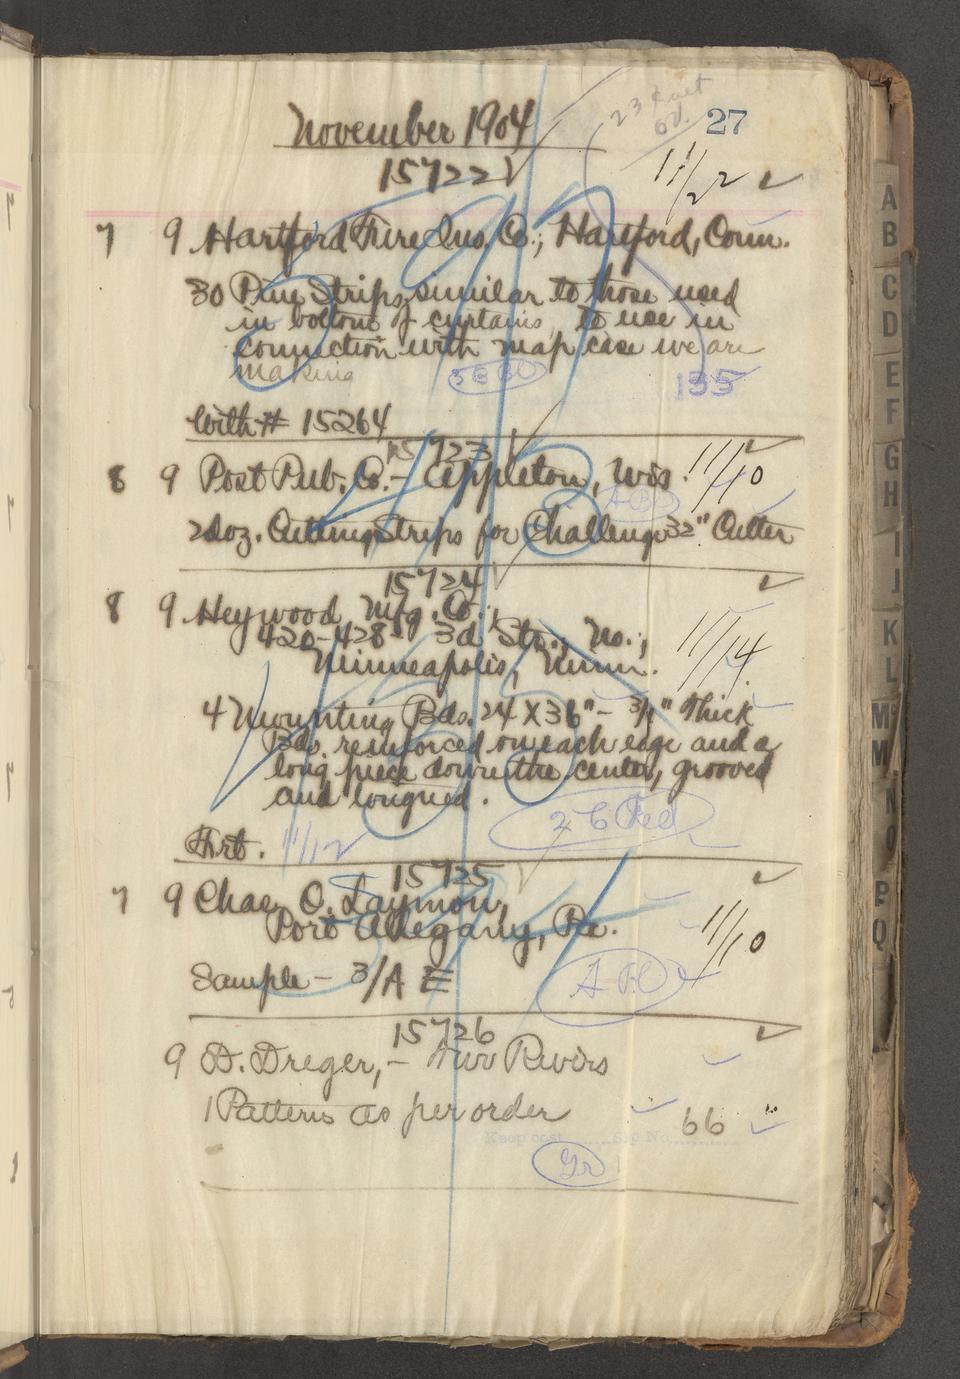 27
November 1904
15722
11/22
7 9 Hartford Fire Ins. Co., Hartford, Conn.
30 Pine Strips, similar to those used
in bottom of curtains, to use in
connection with map case we are
making
135
With # 15264
15723
8 9 Post Pub. Co. - Appleton, Wis. 11/10
2 doz. Cutting Strips for Challenge 32" Cutter
15724
8 9 Heywood Mfg. Co.,
420-428 - 3d Str., No.,
Minneapolis, Minn. 11/14
4 Mounting Bds. 24 X 36" - 3/4" thick
Bds. reinforced on each edge and a
long piece down the center, grooved
and tongued.
Frt. 11/12
15725
7 9 Chas. O. Laymon,
Port Allegany, Pa. 11/10
Sample - 3/A E
15726
9 D. Dreger, - Two Rivers
1 Pattern as per order 66
Keep cost Slip No.
Gr